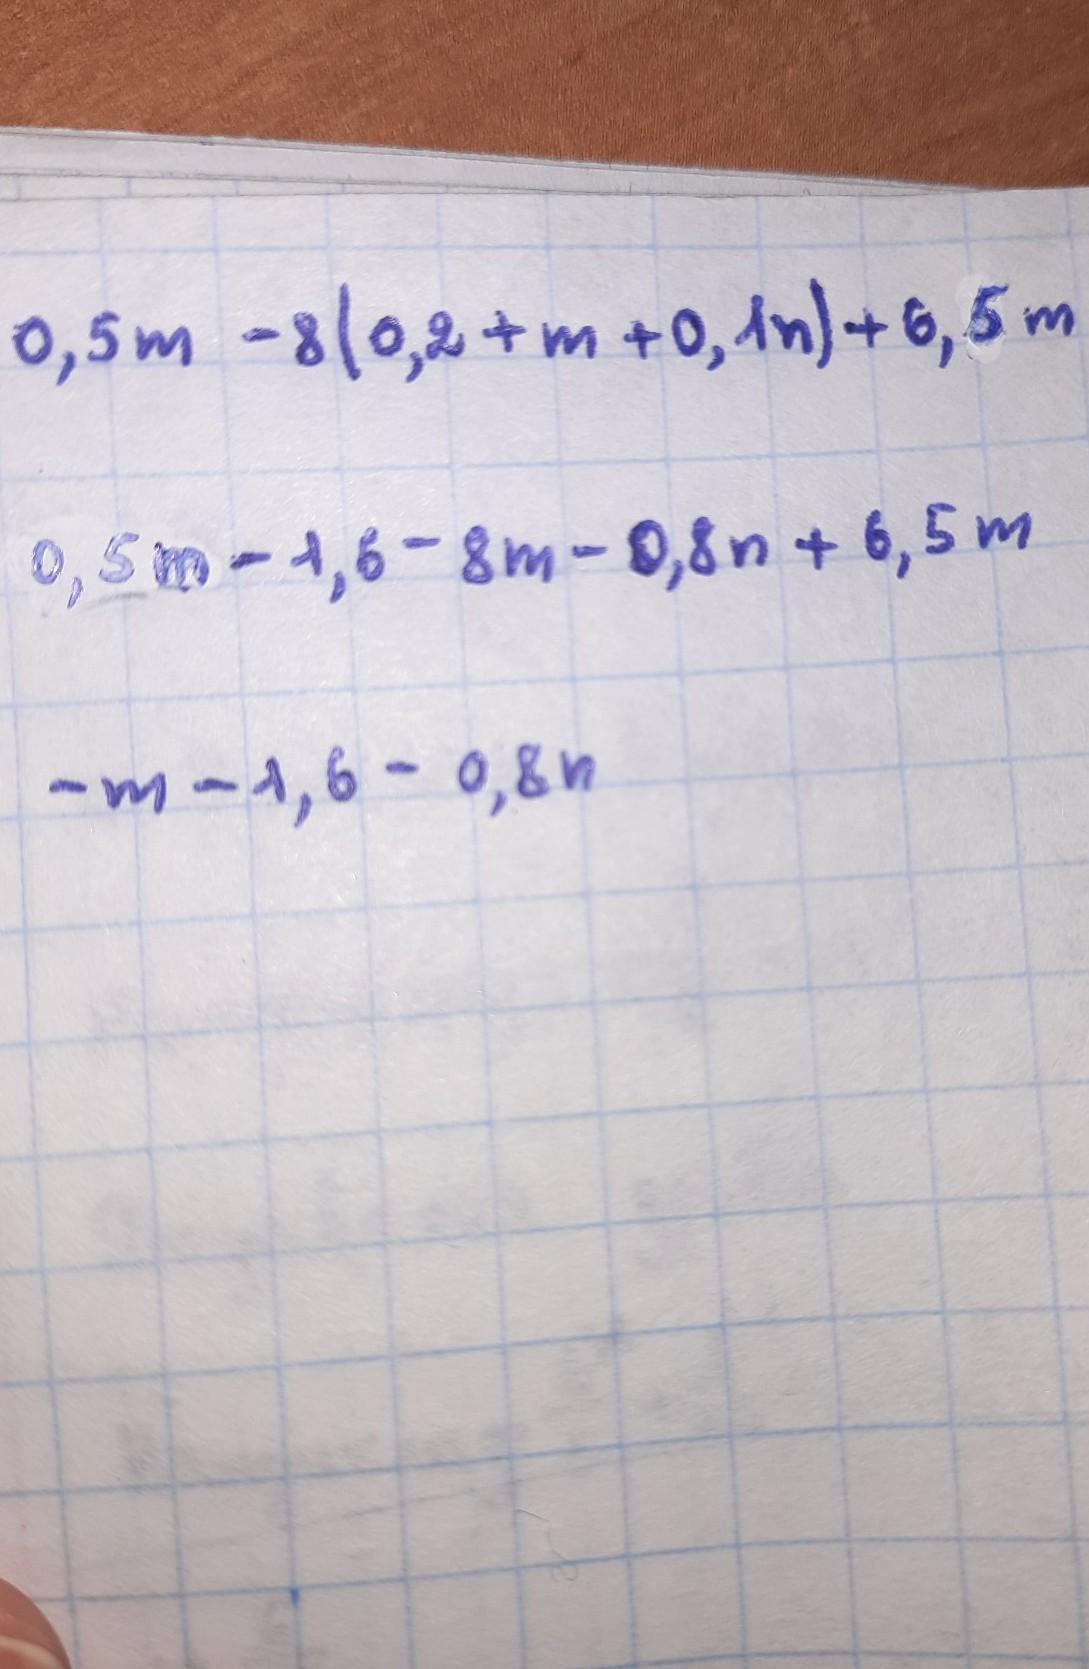 0,5m - 8(0,2 + m + 0,1n) + 6,5m
0,5m - 1,6 - 8m - 0,8n + 6,5m
- m - 1,6 - 0,8n